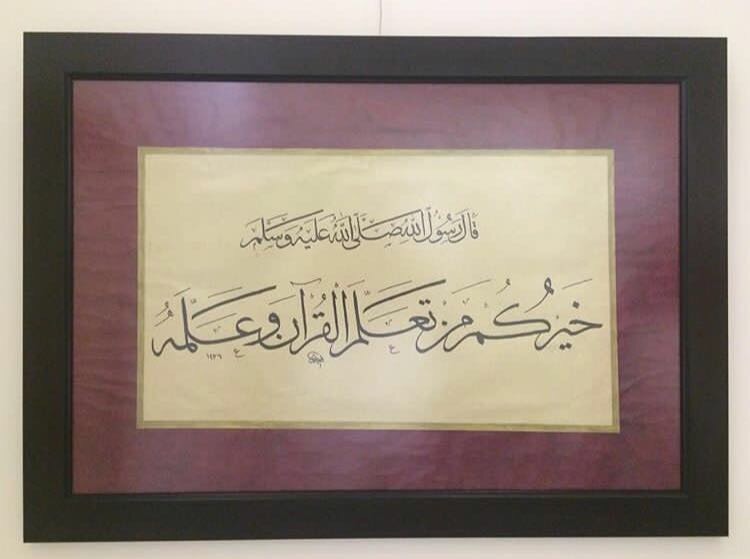 قال رسول الله صلى الله عليه وسلم
خيركم من تعلم القرآن وعلمه
١٤٢٦